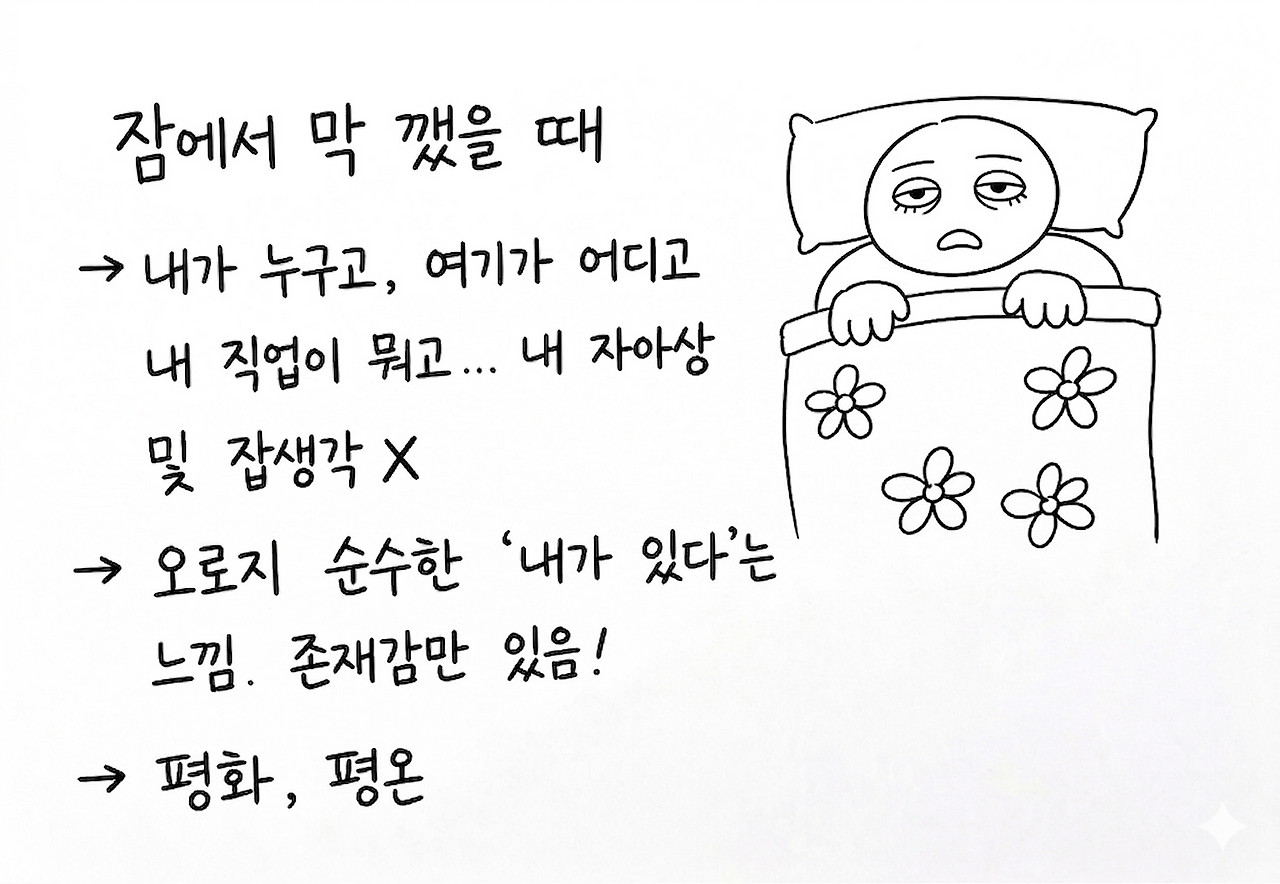 잠에서 막 깼을 때
→ 내가 누구고, 여기가 어디고
내 직업이 뭐고... 내 자아상
및 잡생각 X
→ 오로지 순수한 '내가 있다'는
느낌. 존재감만 있음!
→ 평화, 평온